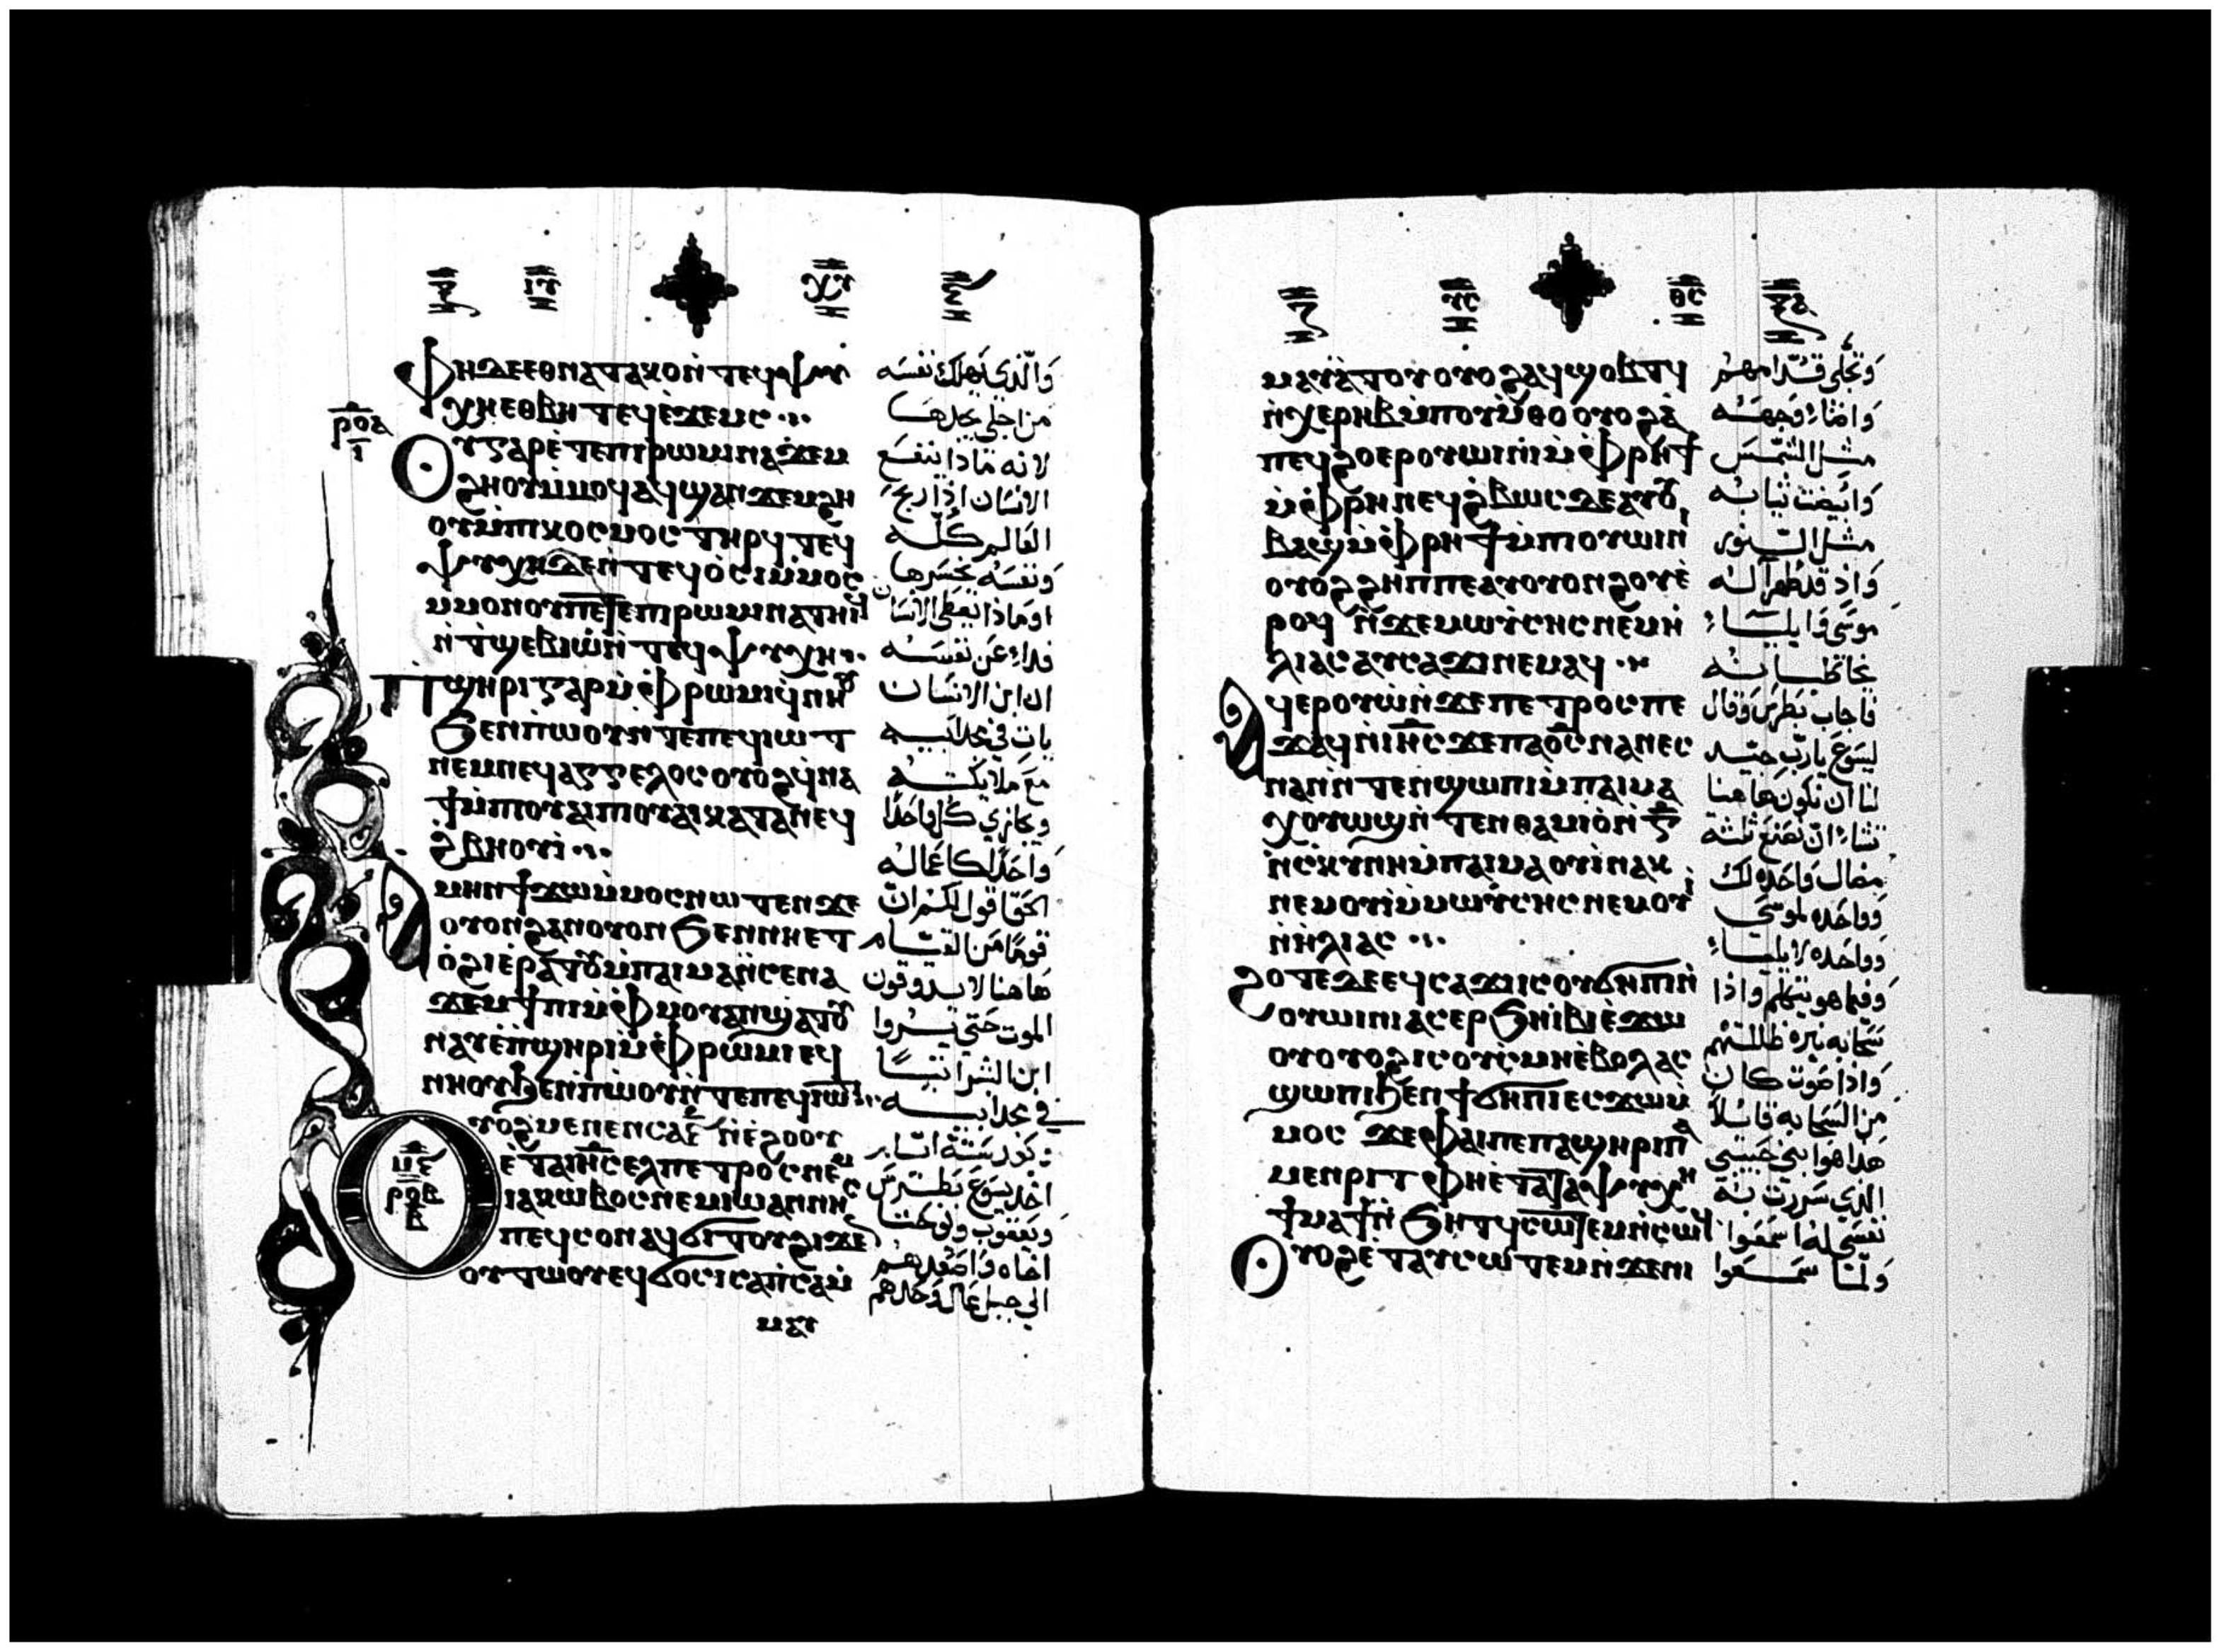 ⲫⲏⲇⲉⲉⲑⲛⲁⲧⲁⲕⲟⲛ̀ⲧⲉϥⲯⲩ
ⲭⲏⲉⲑⲃⲏⲧⲉϥⲉ̀ϫⲉⲙⲥ
ⲟⲩⲅⲁⲣⲉ̀ⲧⲉⲡⲓⲣⲱⲙⲓⲛⲁϫⲉⲙ
ϩⲏⲟⲩⲙ̀ⲙⲟϥⲁϥϣⲁⲛϫⲉⲙϩⲏ
ⲟⲩⲙ̀ⲡⲓⲕⲟⲥⲙⲟⲥⲧⲏⲣϥⲧⲉϥ
ⲯⲩⲭⲏⲇⲉⲛ̀ⲧⲉϥⲟ̀ⲥⲓⲙ̀ⲙⲟⲥ
ⲙⲙⲟⲛⲟⲩⲡⲉⲧⲉⲡⲓⲣⲱⲙⲓⲛⲁⲧⲏⲓϥ
ⲛ̀ⲧ̀ϣⲉⲃⲓⲱ̀ⲛ̀ⲧⲉϥⲯⲩⲭⲏ
ⲡϣⲏⲣⲓⲅⲁⲣⲙ̀ⲫ̀ⲣⲱⲙⲓϥ̀ⲛⲏⲟⲩ
ϧⲉⲛⲡ̀ⲱⲟⲩⲛ̀ⲧⲉⲡⲉϥⲓⲱⲧ
ⲛⲉⲙⲛⲉϥⲁⲅⲅⲉⲗⲟⲥⲟⲩⲟϩϥ̀ⲛⲁ
ϯⲙ̀ⲡⲓⲟⲩⲁⲓⲡⲓⲟⲩⲁⲓⲕⲁⲧⲁⲛⲉϥ
ϩ̀ⲃⲏⲟⲩⲓ̀
ⲁⲙⲏⲛϯϫⲱⲙ̀ⲙⲟⲥⲛⲱⲧⲉⲛϫⲉ
ⲟⲩⲟⲛϩⲁⲛⲟⲩⲟⲛϧⲉⲛⲛⲏⲉⲧ
ⲟ̀ϩⲓⲉ̀ⲣⲁⲧⲟⲩⲙ̀ⲡⲁⲓⲙⲁⲛ̀ⲥⲉⲛⲁ
ϫⲉⲙϯⲡⲓⲙ̀ⲫ̀ⲙⲟⲩⲁⲛϣⲁⲧⲟⲩ
ⲛⲁⲩⲉ̀ⲡ̀ϣⲏⲣⲓⲙ̀ⲫ̀ⲣⲱⲙⲓⲉϥ
ⲛⲏⲟⲩϧⲉⲛⲡ̀ⲱⲟⲩⲛ̀ⲧⲉⲡⲉϥⲓⲱⲧ
ⲟⲩⲟϩⲙⲉⲛⲉⲛⲥⲁⲋ̅ⲛ̀ⲉ̀ϩⲟⲟⲩ
ⲉ̀ⲧⲁⲓⲏ̅ⲥ̅ⲉⲗⲡⲉⲧⲣⲟⲥⲛⲉⲙ
ⲓⲁⲕⲱⲃⲟⲥⲛⲉⲙⲓⲱⲁⲛⲛⲏⲥ
ⲡⲉϥⲥⲟⲛⲁϥϭⲓⲧⲟⲩϩⲓϫⲉ
ⲟⲩⲧⲱⲟⲩⲉϥϭⲟⲥⲓⲥⲁⲡ̀ⲥⲁⲙ̀
وَالّذي يَهلك نفسَه
من اجلي يجدهَا
لانه مَاذا ينتفع
الانسَان اذا ربح
العَالم كُلّه
وَنفسَه يخسَرها
اومَاذا يعطى الانسَان
فداءً عَن نفسَه
ان ابن الانسَان
يات في مجد ابيه
مع ملايكته
ويجَازي كل وَاحدًا
وَاحدًا كاعمَاله
الحق اقول لكم ان
قومًا من القيَام
هَاهنا لا يدوقون
الموت حَتى يَروا
ابن البشر اتيًا
في مجد ابيه
وبَعد ستة ايَام
اخد يسوع بطرس
وَيعقوب ويوحنا
اخاه وَاصعَدهم
الي جبل عَال وَحدهم
ⲙⲁⲩ
ⲙⲁⲩⲁ̀ⲧⲟⲩⲟⲩⲟϩⲁϥϣⲟⲃⲧϥ
ⲛ̀ⲭⲉⲣⲏⲃⲙ̀ⲡⲟⲩⲙ̀ⲑⲟⲟⲩⲟϩⲁ̀
ⲡⲉϥϩⲟⲉⲣⲟⲩⲱⲓⲛⲓⲙ̀ⲫ̀ⲣⲏϯ
ⲙ̀ⲫ̀ⲣⲏⲛⲉϥϩ̀ⲃⲱⲥⲇⲉⲁⲩⲟⲩ
ⲃⲁϣⲙ̀ⲫ̀ⲣⲏϯⲙ̀ⲡⲓⲟⲩⲱⲓⲛⲓ
ⲟⲩⲟϩϩⲏⲡⲡⲉⲁⲩⲟⲩⲟⲛϩⲟⲩⲉ̀
ⲣⲟϥⲛ̀ϫⲉⲙⲱⲩ̀ⲥⲏⲥⲛⲉⲙⲏ̀
ⲗⲓⲁⲥⲁⲩⲥⲁϫⲓⲛⲉⲙⲁϥ
ⲁϥⲉⲣⲟⲩⲱ̀ⲛ̀ϫⲉⲡⲉⲧⲣⲟⲥⲡⲉ
ϫⲁϥⲛ̀ⲓⲏ̅ⲥ̅ϫⲉⲡⲁⲟ̅ⲥ̅ⲛⲁⲛⲉⲥ
ⲛⲁⲛⲛ̀ⲧⲉⲛϣⲱⲡⲓⲙ̀ⲡⲁⲓⲙⲁ
ⲭⲟⲩⲱϣⲛ̀ⲧⲉⲛⲑⲁⲙⲓⲟ̀ⲛ̀ⲅ̅
ⲛ̀ⲥ̀ⲕⲩⲛⲏⲙ̀ⲡⲁⲓⲙⲁⲟⲩⲓ̀ⲛⲁⲕ
ⲛⲉⲙⲟⲩⲓ̀ⲙ̀ⲙⲱⲩ̀ⲥⲏⲥⲛⲉⲙⲟⲩⲓ̀
ⲛ̀ⲏ̀ⲗⲓⲁⲥ
ϩⲟⲧⲉⲇⲉⲉϥⲥⲁϫⲓⲓⲥⲟⲩϭⲏⲡⲓⲛ̀
ⲟⲩⲱⲓⲛⲓⲁⲥⲉⲣϧⲏⲓⲃⲓⲉ̀ϫⲱ
ⲟⲩⲟⲩⲟϩⲓⲥⲟⲩⲥ̀ⲙⲏⲉ̀ⲃⲟⲗⲁⲥ
ϣⲱⲡⲓϧⲉⲛϯϭⲏⲡⲓⲉⲥϫⲱⲙ̀
ⲙⲟⲥϫⲉⲫⲁⲓⲡⲉⲡⲁϣⲏⲣⲓⲡⲁ
ⲙⲉⲛⲣⲓⲧⲫⲏⲉ̀ⲧⲁⲧⲁⲯⲩⲭⲏ
ϯⲙⲁϯⲛ̀ϧⲏⲧϥⲥⲱⲧⲉⲙⲛ̀ⲥⲱϥ
ⲟⲩⲟϩⲉ̀ⲧⲁⲩⲥⲱⲧⲉⲙⲛ̀ϫⲉⲛⲓ
وَتجلى قدّامهم
وَاضَاء وَجهَه
مثل الشمسَ
وَابيضت ثيابه
مثل النور
وَاذ قد ظهرَ اله
موسَي وَايليَاء
يخاطبانه
فاجاب بَطرس وَقال
ليسوع يارب جيّد
لنا ان نكون هَاهنا
تشاء ان نصنع ثلثه
مضال وَاحده لك
ووَاحده لموسَي
ووَاحده لايليَاء
وفيما هو يتكلم واذا
سَحابه نيره ظللتهم
وَاذا صَوت كان
من السَحابه قايلاً
هَدا هوَ ابني حبيبي
الذي سَررت به
نفسَي له اسمَعوا
وَلما سمَعوا